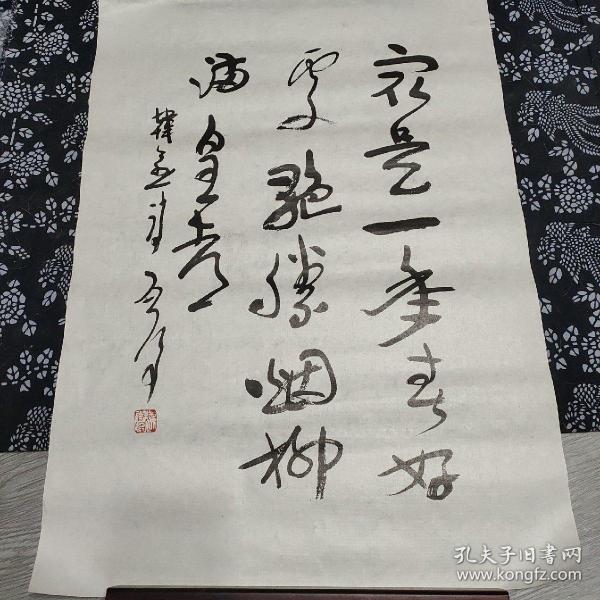 最是一年春好
处绝胜烟柳
满皇都
韩愈诗
孔夫子旧书网
www.kongfz.com